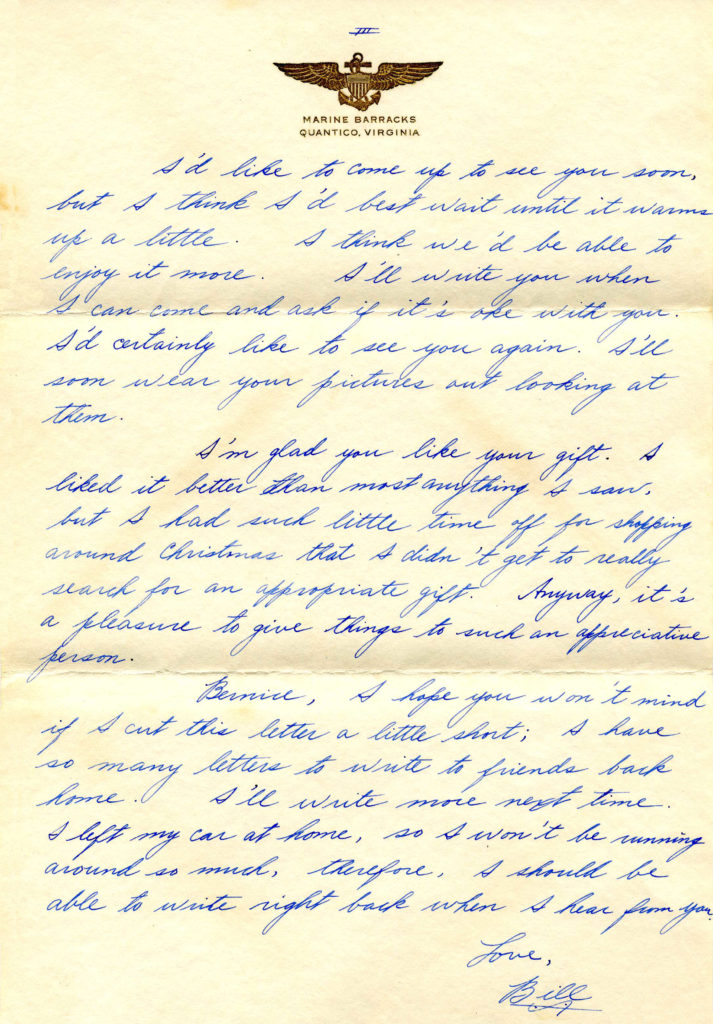 III
MARINE BARRACKS
QUANTICO, VIRGINIA
I'd like to come up to see you soon,
but I think I'd best wait until it warms
up a little. I think we'd be able to
enjoy it more. I'll write you when
I can come and ask if it's oke with you.
I'd certainly like to see you again. I'll
soon wear your pictures out looking at
them.
I'm glad you like your gift. I
liked it better than most anything I saw,
but I had such little time off for shopping
around Christmas that I didn't get to really
search for an appropriate gift. Anyway, it's
a pleasure to give things to such an appreciative
person.
Bernice, I hope you won't mind
if I cut this letter a little short; I have
so many letters to write to friends back
home. I'll write more next time.
I left my car at home, so I won't be running
around so much, therefore, I should be
able to write right back when I hear from you.
Love,
Bill